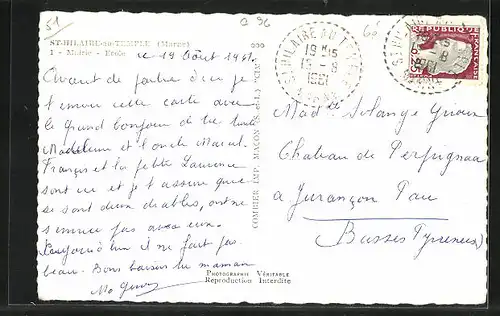 51
G 96
60
ST-HILAIRE-au-TEMPLE (Marne)
1 - Mairie - Ecole
000
le 19 Août 1961
Avant de partir d'ici je
t'envoie cette carte avec
le grand bonjour de
Madeleine et l'oncle Marcel.
François et la petite Laurence
sont ici et je t'assure que
ce sont deux diables, on ne
s'ennuie pas avec eux.
il ne fait pas
beau. Bons baisers ta maman
COMBIER IMP. MACON (S.-et-L.) "CIM"
PHOTOGRAPHIE VÉRITABLE
Reproduction Interdite
ST HILAIRE AU TEMPLE
19 H 15
19 - 8
1961
MARNE
FRANÇAISE
0,25
Mad elle Solange
Chateau de Perpignaa
a Jurançon Pau
Basses Pyrenees